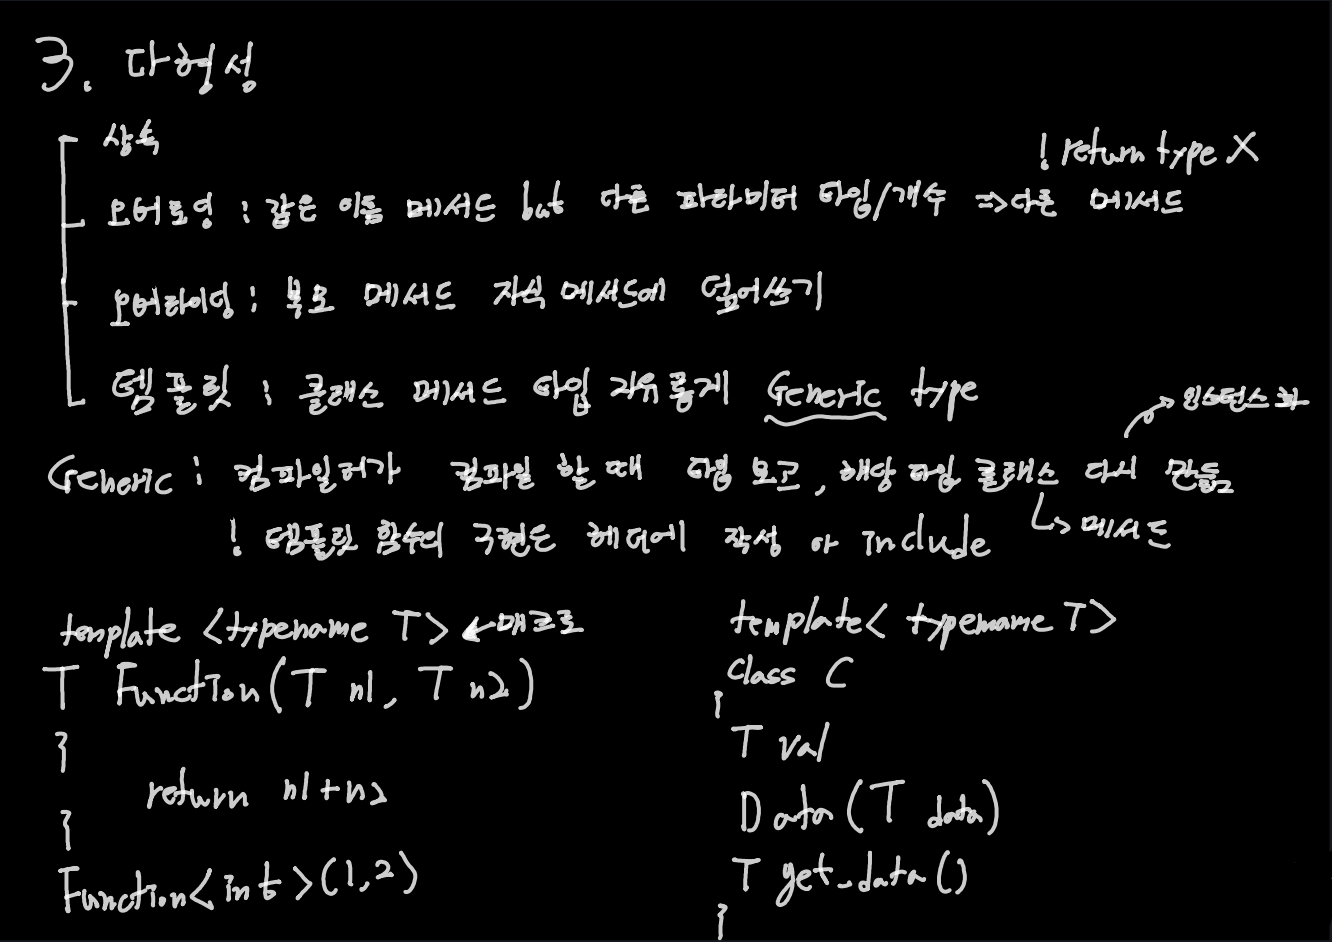 3. 다형성
상속
! return type X
오버로딩 : 같은 이름 메서드 but 다른 파라미터 타입/개수 => 다른 메서드
오버라이딩 : 부모 메서드 자식 메서드에 덮어쓰기
템플릿 : 클래스 메서드 타입 자유롭게 Generic type
→ 인스턴스화
Generic : 컴파일러가 컴파일 할 때 타입 보고, 해당 타입 클래스 다시 만듦
↳ 메서드
! 템플릿 함수의 구현은 헤더에 작성 or include
template <typename T> ← 매크로
T Function(T n1, T n2)
{
return n1+n2
}
Function<int>(1,2)
template< typename T>
class C
{
T val
Data(T data)
T get_data()
}